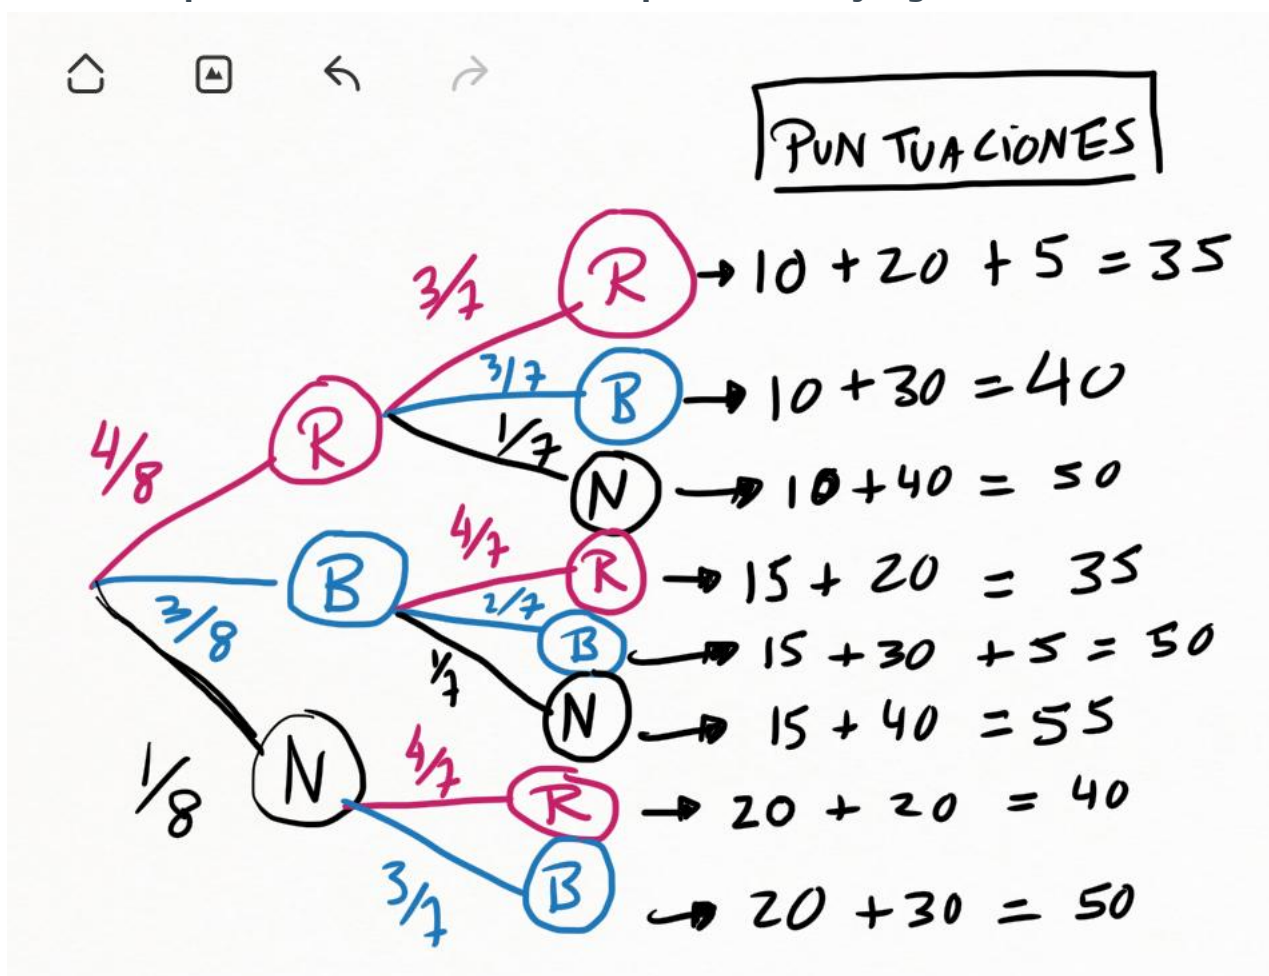 PUNTUACIONES
3/7 R → 10 + 20 + 5 = 35
3/7 B → 10 + 30 = 40
4/8 R
1/7 N → 10 + 40 = 50
4/7 R → 15 + 20 = 35
3/8 B
2/7 B → 15 + 30 + 5 = 50
1/7 N → 15 + 40 = 55
1/8 N
4/7 R → 20 + 20 = 40
3/7 B → 20 + 30 = 50